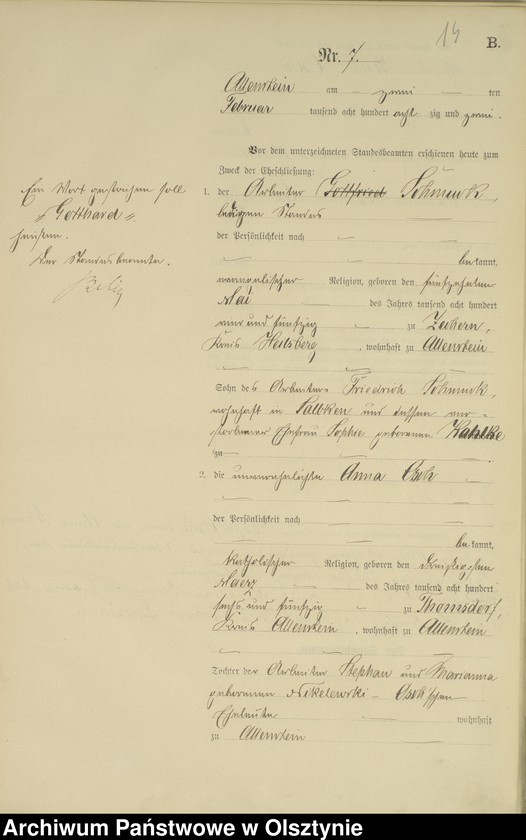 14
B.
Nr. 7.
Allenstein am zwei ten
Februar tausend acht hundert acht zig und zwei.
Vor dem unterzeichneten Standesbeamten erschienen heute zum
Zweck der Eheschließung:
1. der Arbeiter Gottfried Schmuck,
ledigen Standes
der Persönlichkeit nach
be kannt,
evangelischer Religion, geboren den fünfzehnten
Mai des Jahres tausend acht hundert
vier und fünfzig zu
Kreis Heilsberg, wohnhaft zu Allenstein
Sohn des Arbeiters Friedrich Schmuck,
wohnhaft in und dessen ver-
storbener Ehefrau Sophie geborenen Kahlke
zu
2. die unverehelichte Anna
der Persönlichkeit nach
be kannt,
katholischer Religion, geboren den dreißigsten
Maerz des Jahres tausend acht hundert
sechs und fünfzig zu Thomsdorf,
Kreis Allenstein, wohnhaft zu Allenstein
Tochter der Arbeiter Stephan und Marianna
geborenen Nikelewski -
Eheleute wohnhaft
zu Allenstein
Ein Wort gestrichen soll
"Gotthard"
heissen.
Der Standesbeamte.
Archiwum Państwowe w Olsztynie